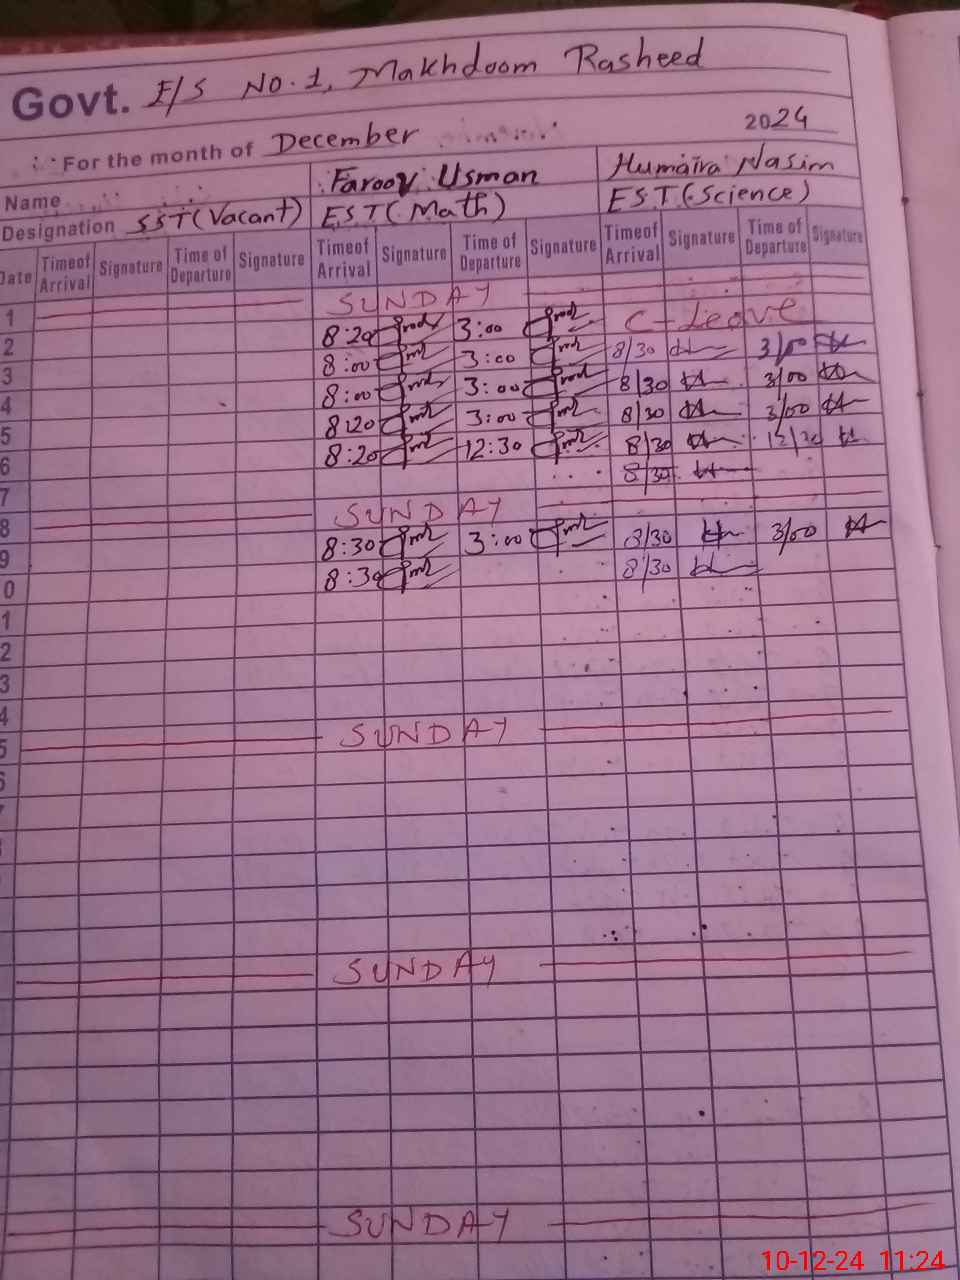 Govt. E/S No.1, Makhdoom Rasheed
For the month of December 2024
Name Farooq Usman Humaira Nasim
Designation SST(Vacant) EST(Math) EST(Science)
Date Timeof Arrival Signature Time of Departure Signature Timeof Arrival Signature Time of Departure Signature Timeof Arrival Signature Time of Departure Signature
1 SUNDAY
2 8:20 3:00 C-Leave
3 8:00 3:00 8/30 3/00
4 8:00 3:00 8/30 3/00
5 8:20 3:00 8/30 3/00
6 8:20 12:30 8/30
7 8/30
8 SUNDAY
9 8:30 3:00 8/30 3/00
0 8:30 8/30
1
2
3
4
5 SUNDAY
SUNDAY
SUNDAY
10-12-24 11:24